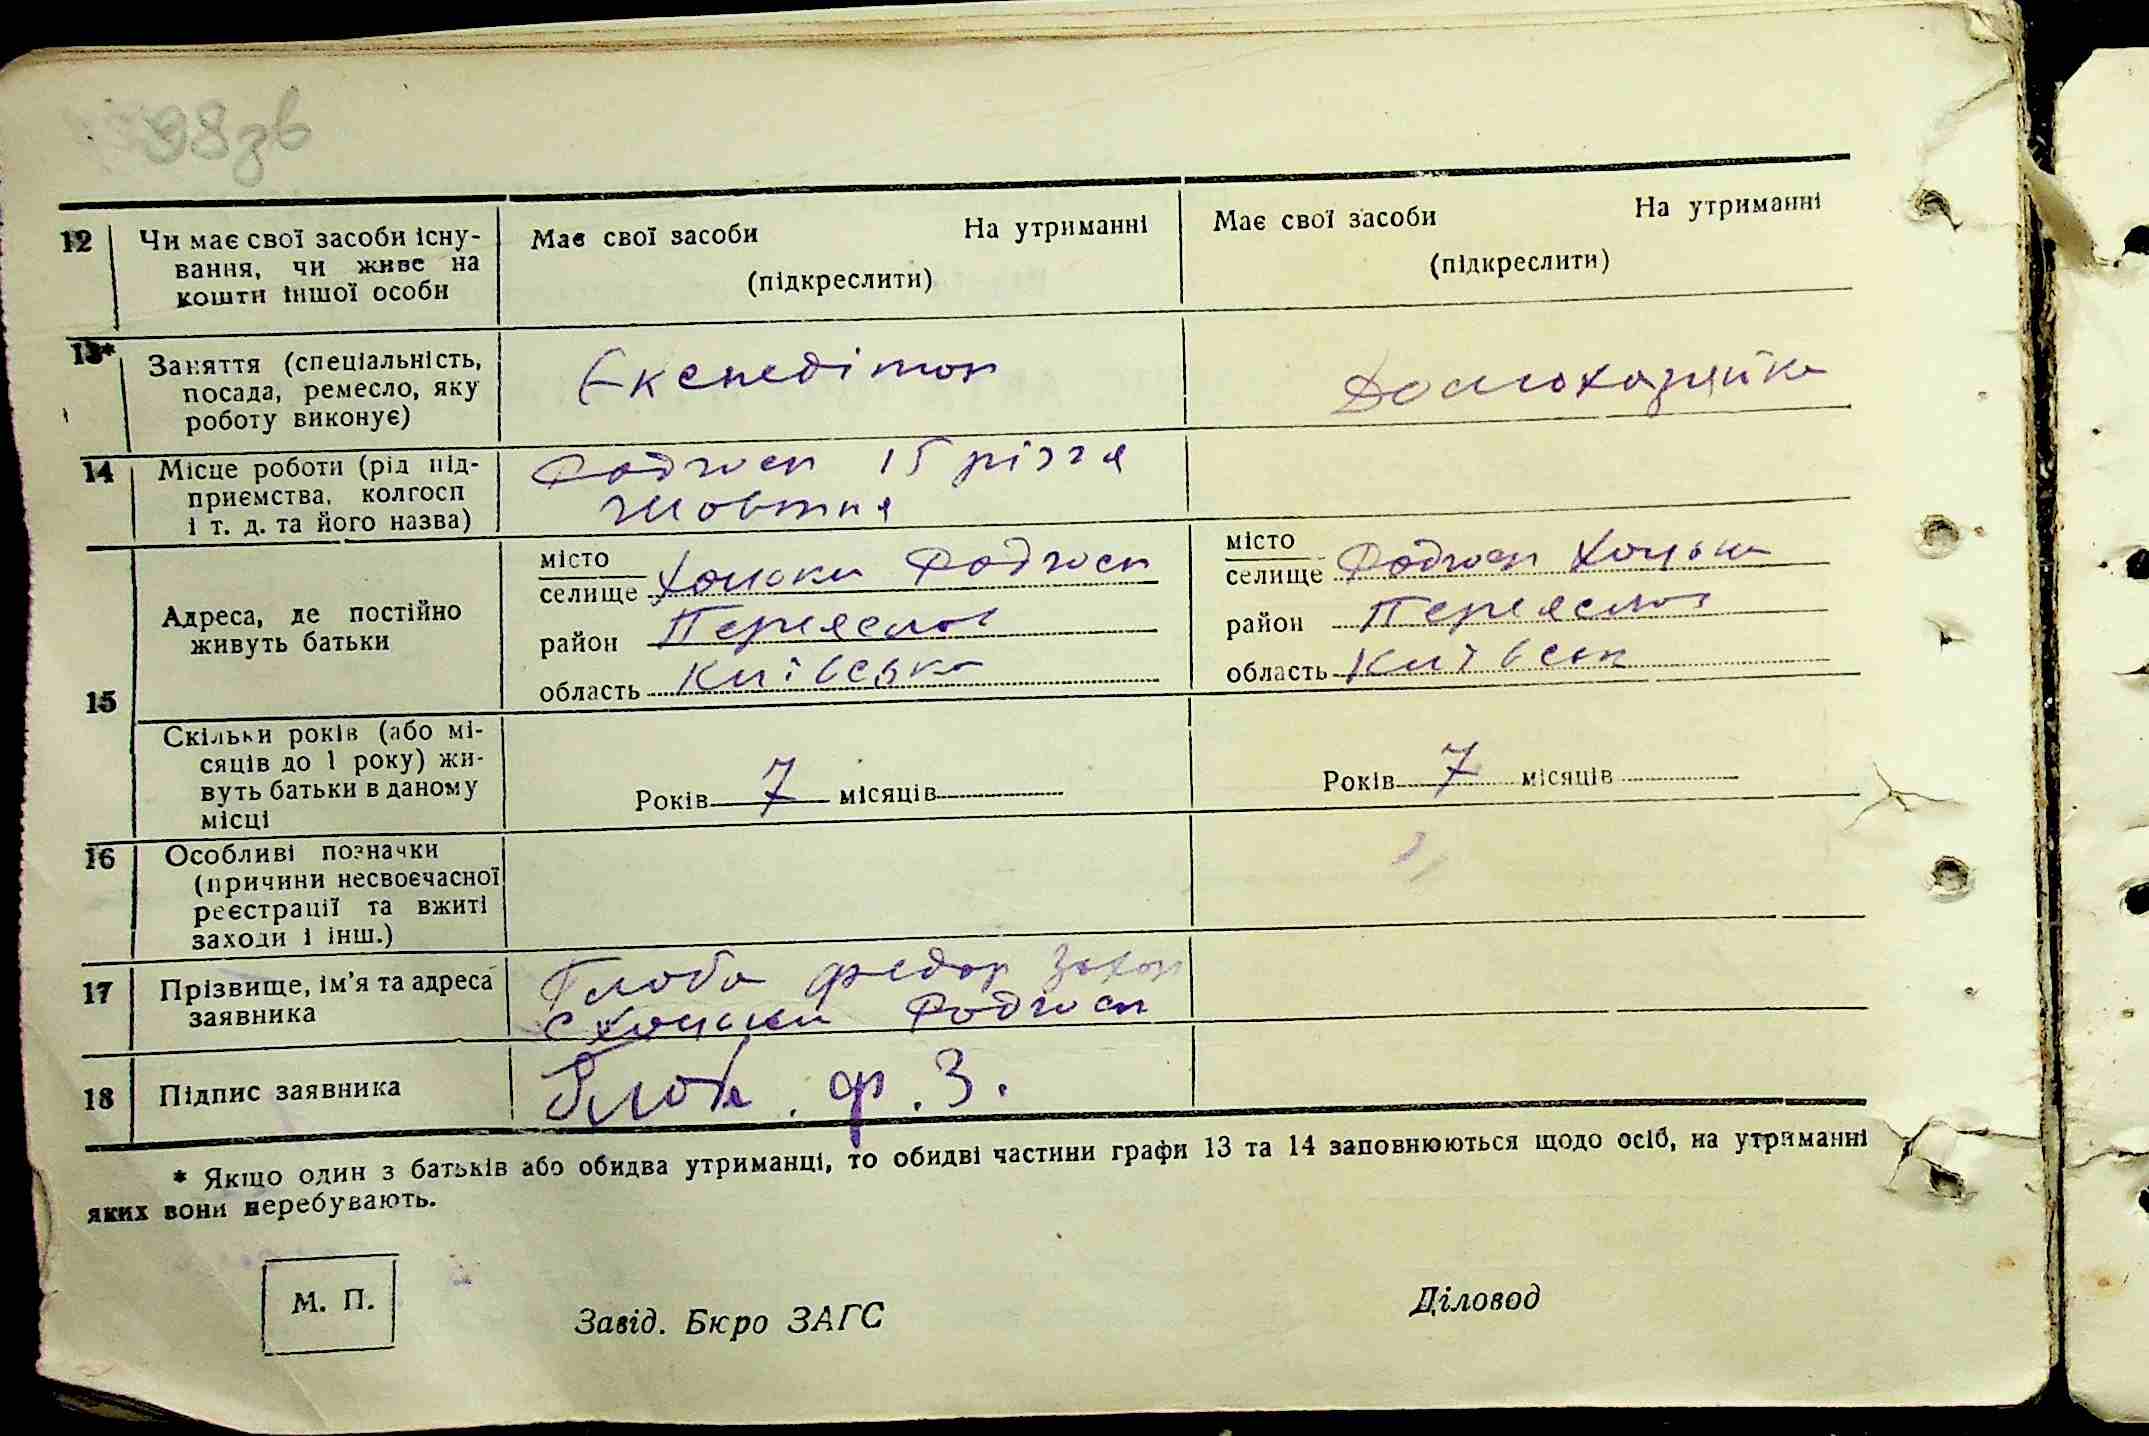 98зв
12 Чи має свої засоби існу-
вання, чи живе на
кошти іншої особи
Має свої засоби На утриманні
(підкреслити)
Має свої засоби На утриманні
(підкреслити)
13* Заняття (спеціальність,
посада, ремесло, яку
роботу виконує)
Експедітор
Домохазяйка
14 Місце роботи (рід під-
приємства, колгосп
і т. д. та його назва)
Радгосп 15 річчя
Жовтня
15
Адреса, де постійно
живуть батьки
місто
селище Хоцьки Радгосп
район Переяслов
область Київська
місто
селище Радгосп Хоцьки
район Переяслов
область Київськ
Скільки років (або мі-
сяців до 1 року) жи-
вуть батьки в даному
місці
Років 7 місяців
Років 7 місяців
16 Особливі позначки
(причини несвоєчасної
реєстрації та вжиті
заходи і інш.)
17 Прізвище, ім'я та адреса
заявника
Глоба Федор Захар
с Хоцьки Радгосп
18 Підпис заявника
Глоба. Ф. З.
* Якщо один з батьків або обидва утриманці, то обидві частини графи 13 та 14 заповнюються щодо осіб, на утриманні
яких вони перебувають.
М. П.
Завід. Бюро ЗАГС
Діловод